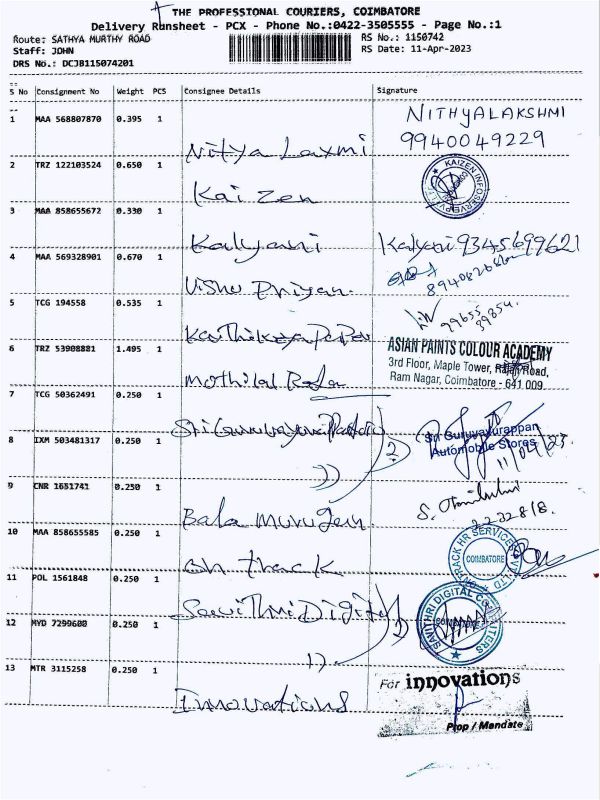 THE PROFESSIONAL COURIERS, COIMBATORE
Delivery Runsheet - PCX - Phone No.:0422-3505555 - Page No.:1
Route: SATHYA MURTHY ROAD RS No.: 1150742
Staff: JOHN RS Date: 11-Apr-2023
DRS No.: DCJB115074201
S No Consignment No Weight PCS Consignee Details Signature
1 MAA 568807870 0.395 1 Nitya Laxmi NITHYALAKSHMI
9940049229
2 TRZ 122103524 0.650 1 Kaizen KAIZEN INFOSERVE
3 MAA 858655672 0.330 1 Kalyani Kalyani 9345699621
4 MAA 569328901 0.670 1 Vishu Priyan
5 TCG 194558 0.535 1 99655
6 TRZ 53908881 1.495 1 Mothilal ASIAN PAINTS COLOUR ACADEMY
3rd Floor, Maple Tower, Road,
Ram Nagar, Coimbatore - 641 009
7 TCG 50362491 0.250 1 Sri Guruvayurappan
8 IXM 503481317 0.250 1 2 Sri Guruvayurappan
Automobile Stores
11/04/23
9 CNR 1631741 0.250 1 Bala Murugan
10 MAA 858655585 0.250 1 HR SERVICES PVT LTD
COIMBATORE
11 POL 1561848 0.250 1 Savithri Digital SAVITHRI DIGITAL COMPUTERS
12 MYD 7299600 0.250 1
13 MTR 3115258 0.250 1 Innovations For innovations
Prop / Mandate